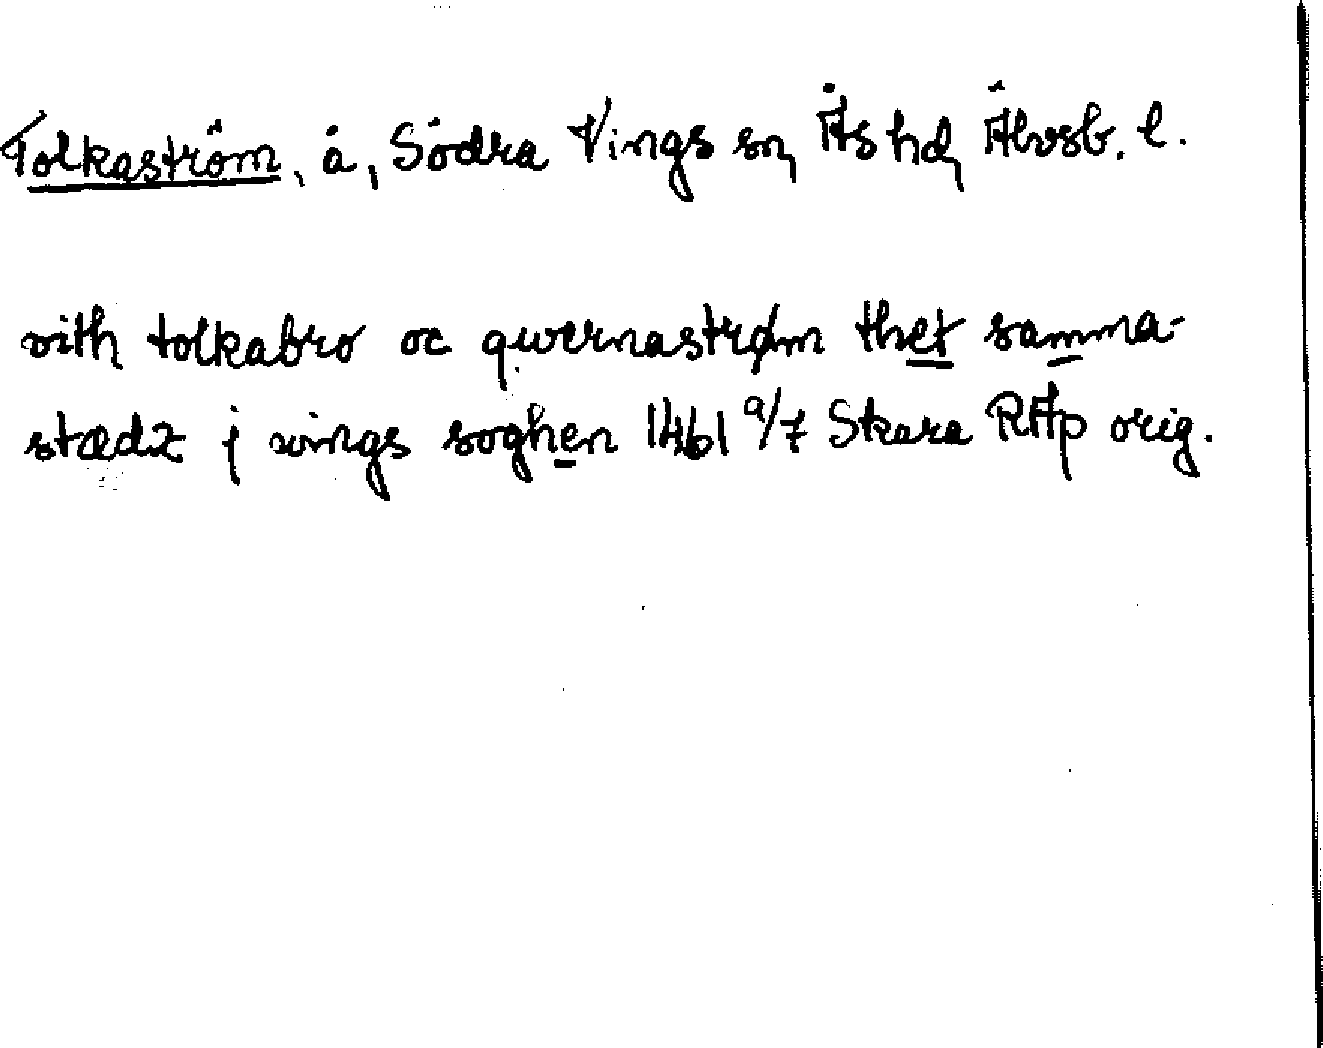 Tolkaström, å, Södra Vings sn, Ås hd, Älvsb. l.
vith tolkabro oc qwernastrøm thet samma-
stædz j wings soghen 1461 9/7 Skara RAp orig.